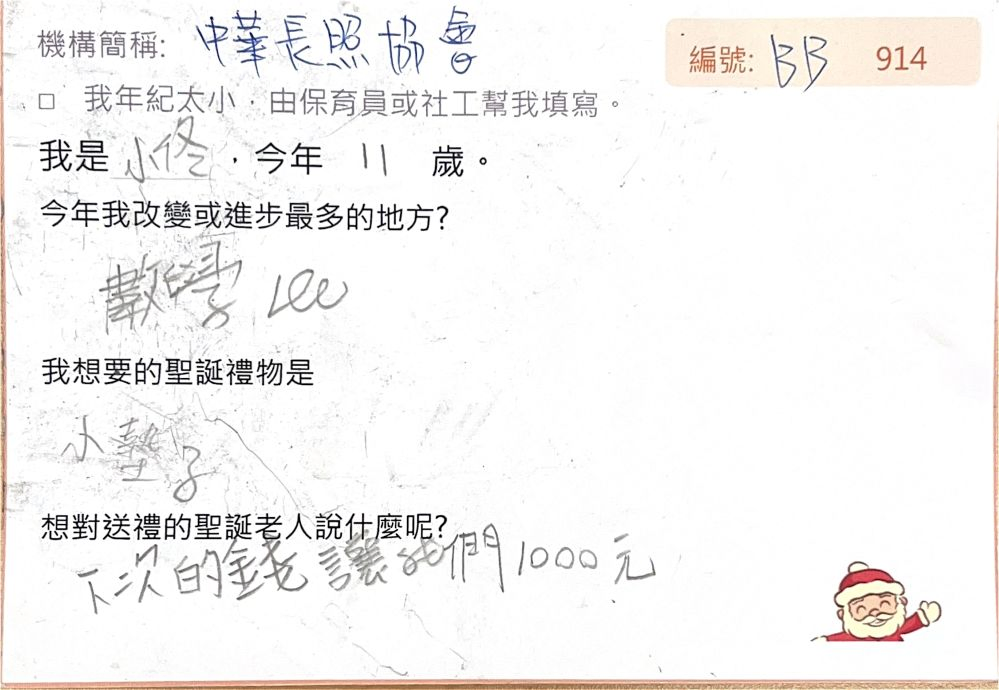 機構簡稱: 中華長照協會
編號: BB 914
□ 我年紀太小，由保育員或社工幫我填寫。
我是 小佟，今年 11 歲。
今年我改變或進步最多的地方?
數學
我想要的聖誕禮物是
小墊子
想對送禮的聖誕老人說什麼呢?
下次的錢讓我們1000元